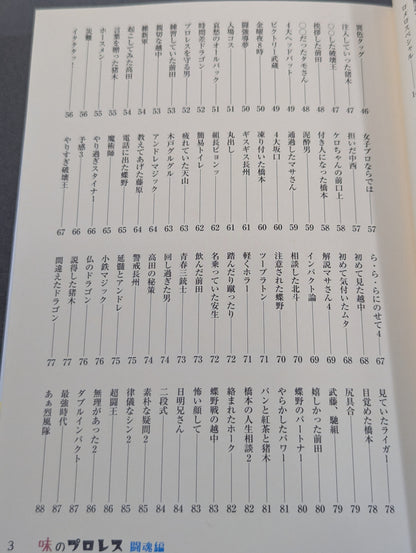 異色タッグ 46
注入していった猪木 47
〇〇した破壊王 47
挨拶した前田 48
〇〇だったタモさん 48
4大ヘッドバット 49
ビクトリー武蔵 49
金曜夜8時 50
闘強導夢 50
入場コス 51
哀愁のオールバック 51
時間差ドラゴン 52
プロレスを守る男 52
練習していた前田 53
親切な越中 53
維新軍 54
起こしてみた高田 54
言葉を贈った猪木 55
ホースメン 55
災難 56
イタタタッ! 56
女子プロならでは 57
担いだ中西 57
ケロちゃんの前口上 58
付き人になった橋本 58
泥酔男 59
通過したマサさん 59
4大坂口 60
凍り付いた橋本 60
ギスギス長州 61
丸出し 61
組長ピョンッ 62
簡易トイレ 62
疲れていた天山 63
木戸グルグル 63
アンドレマジック 64
教えてあげた藤原 64
電話に出た蝶野 65
魔術師 65
やり過ぎスタイナー 66
予感3 66
やりすぎ破壊王 67
ら・ら・らにのせて4 67
初めて見た越中 68
初めて気付いたムタ 68
解説マサさん4 69
インパクト論 69
相談した北斗 70
注意された蝶野 70
ツープラトン 71
軽くホラー 71
踏んだり蹴ったり 72
名乗っていた安生 72
飲んだ前田 73
青春三銃士 73
回し過ぎた男 74
高田の秘策 74
警戒長州 75
延髄とアンドレ 75
小鉄マジック 76
仏のドラゴン 76
説得した猪木 77
間違えたドラゴン 77
見ていたライガー 78
目覚めた橋本 78
尻具合 79
武藤、馳組 79
嬉しかった前田 80
蝶野のパートナー 80
やらかしたパワー 81
パンと紅茶と猪木 81
橋本の人生相談2 82
絡まれたホーク 82
蝶野戦の越中 83
怖い顔して 83
日明兄さん 84
二段式 84
素朴な疑問2 85
律儀なシン2 85
超闘王 86
無理があった2 86
ダブルインパクト 87
最強時代 87
あぁ烈風隊 88
3 味のプロレス 闘魂編